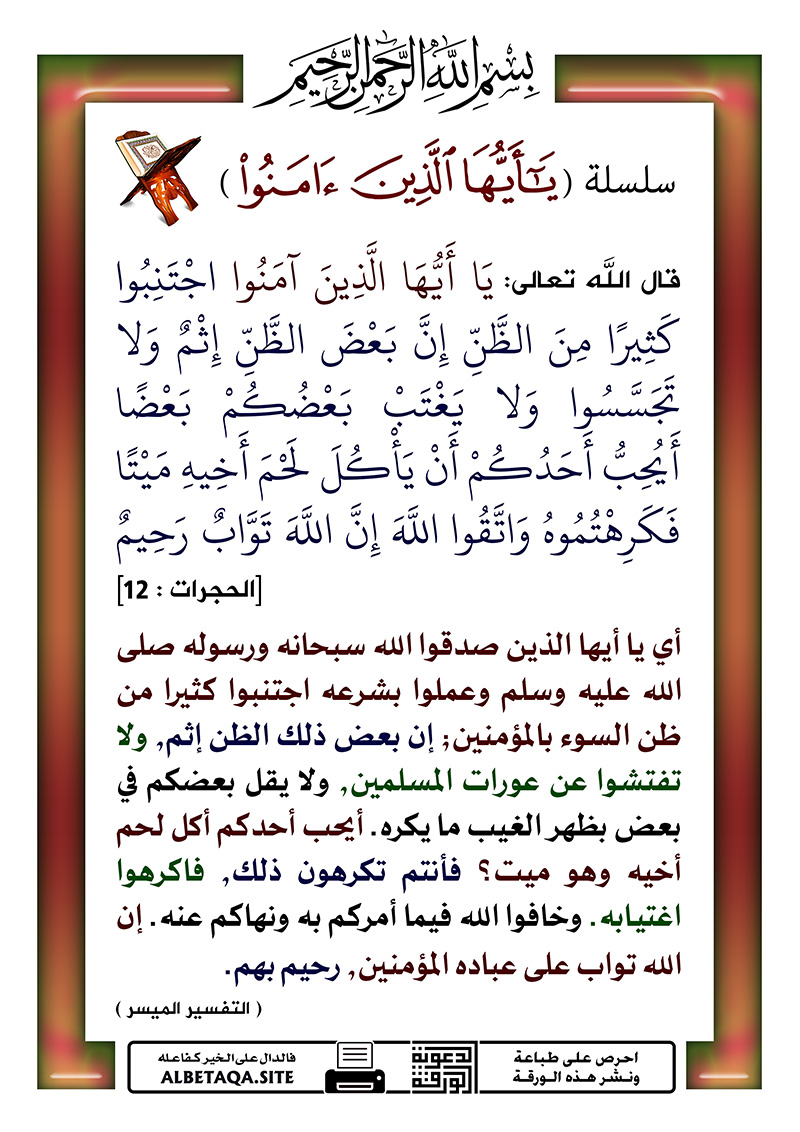 بِسْمِ اللَّهِ الرَّحْمَٰنِ الرَّحِيمِ
سلسلة (يَـٰٓأَيُّهَا ٱلَّذِينَ ءَامَنُوا۟)
قال اللَّه تعالى: يَا أَيُّهَا الَّذِينَ آمَنُوا اجْتَنِبُوا
كَثِيرًا مِنَ الظَّنِّ إِنَّ بَعْضَ الظَّنِّ إِثْمٌ وَلا
تَجَسَّسُوا وَلا يَغْتَبْ بَعْضُكُمْ بَعْضًا
أَيُحِبُّ أَحَدُكُمْ أَنْ يَأْكُلَ لَحْمَ أَخِيهِ مَيْتًا
فَكَرِهْتُمُوهُ وَاتَّقُوا اللَّهَ إِنَّ اللَّهَ تَوَّابٌ رَحِيمٌ
[الحجرات : 12]
أي يا أيها الذين صدقوا الله سبحانه ورسوله صلى
الله عليه وسلم وعملوا بشرعه اجتنبوا كثيرا من
ظن السوء بالمؤمنين; إن بعض ذلك الظن إثم, ولا
تفتشوا عن عورات المسلمين, ولا يقل بعضكم في
بعض بظهر الغيب ما يكره. أيحب أحدكم أكل لحم
أخيه وهو ميت؟ فأنتم تكرهون ذلك, فاكرهوا
اغتيابه. وخافوا الله فيما أمركم به ونهاكم عنه. إن
الله تواب على عباده المؤمنين, رحيم بهم.
( التفسير الميسر )
احرص على طباعة
ونشر هذه الورقة
الورقة الدعوية
فالدال على الخير كفاعله
ALBETAQA.SITE